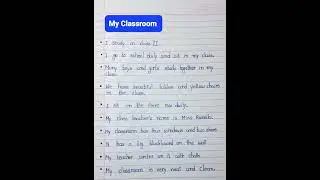 My Classroom
I study in class II
I go to school daily and sit in my class.
Many boys and girls study together in my
class.
We have beautiful tables and yellow chairs
in the class.
I sit on the front row daily.
My class teacher's name is Miss
My classroom has four windows and two doors
It has a big blackboard on the wall
My teacher writes on it with chalk.
My classroom is very neat and Clean.